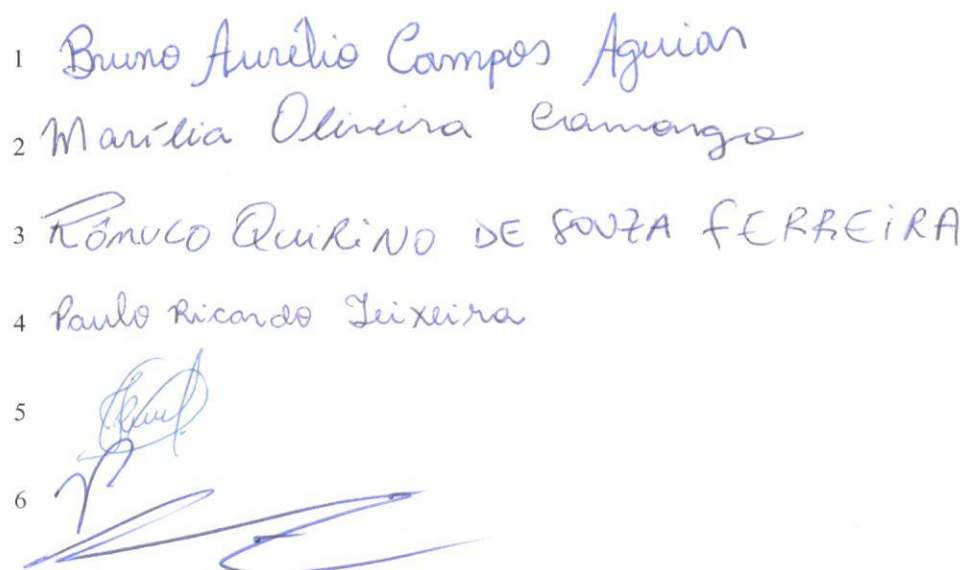 1 Bruno Aurélio Campos Aguiar
2 Marília Oliveira Camargo
3 RÔMULO QUIRINO DE SOUZA FERREIRA
4 Paulo Ricardo Teixeira
5
6